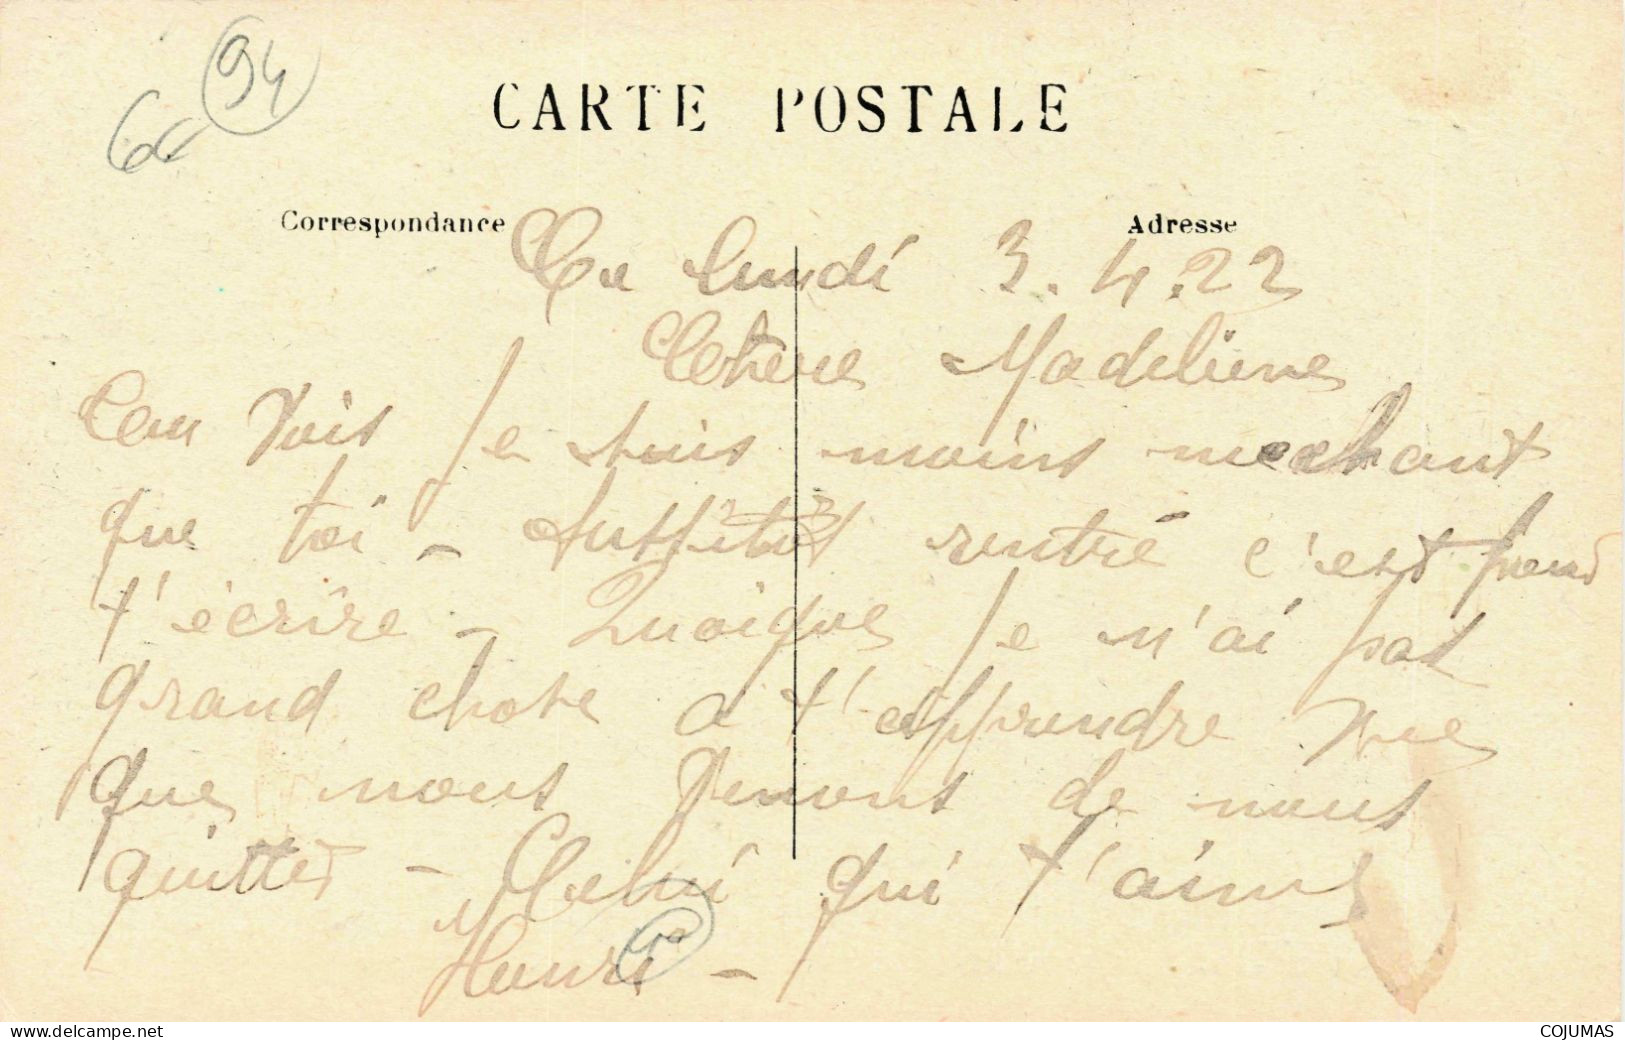 94
CARTE POSTALE
Correspondance
Adresse
Ce lundi 3.4.22
Chere Madeliene
Tu vois Je suis moins mechant
que toi - Aussitot rentré c'est pour
t'écrire - Quoique Je n'ai pas
grand chose a t'apprendre vue
que nous venons de nous
quitter - Celui qui t'aime
Henri -
www.delcampe.net
COJUMAS